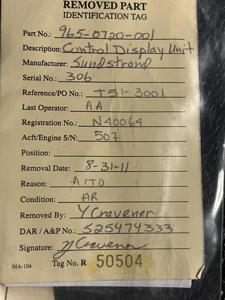 REMOVED PART
IDENTIFICATION TAG
Part No.: 965-0720-001
Description: Control Display Unit
Manufacturer: Sundstrand
Serial No.: 306
Reference/PO No.: TS1-3001
Last Operator: AA
Registration No.: N40064
Acft/Engine S/N: 507
Position:
Removal Date: 8-31-11
Reason: A/TD
Condition: AR
Removed By: Y Cravener
DAR / A&P No.: 525474333
Signature: Y Cravener
MA-104 Tag No. R 50504